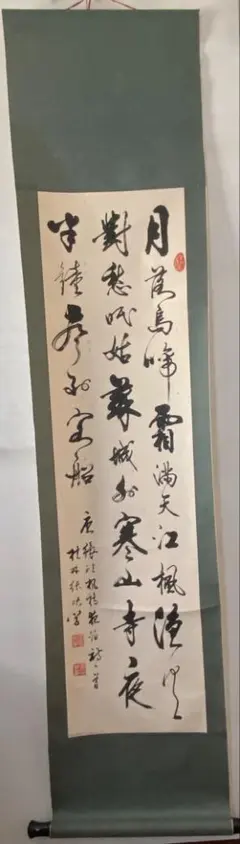 月落烏啼霜滿天江楓漁火
對愁眠姑蘇城外寒山寺夜
半鐘聲到客船
唐張継楓橋夜泊詩一首
桂林張書